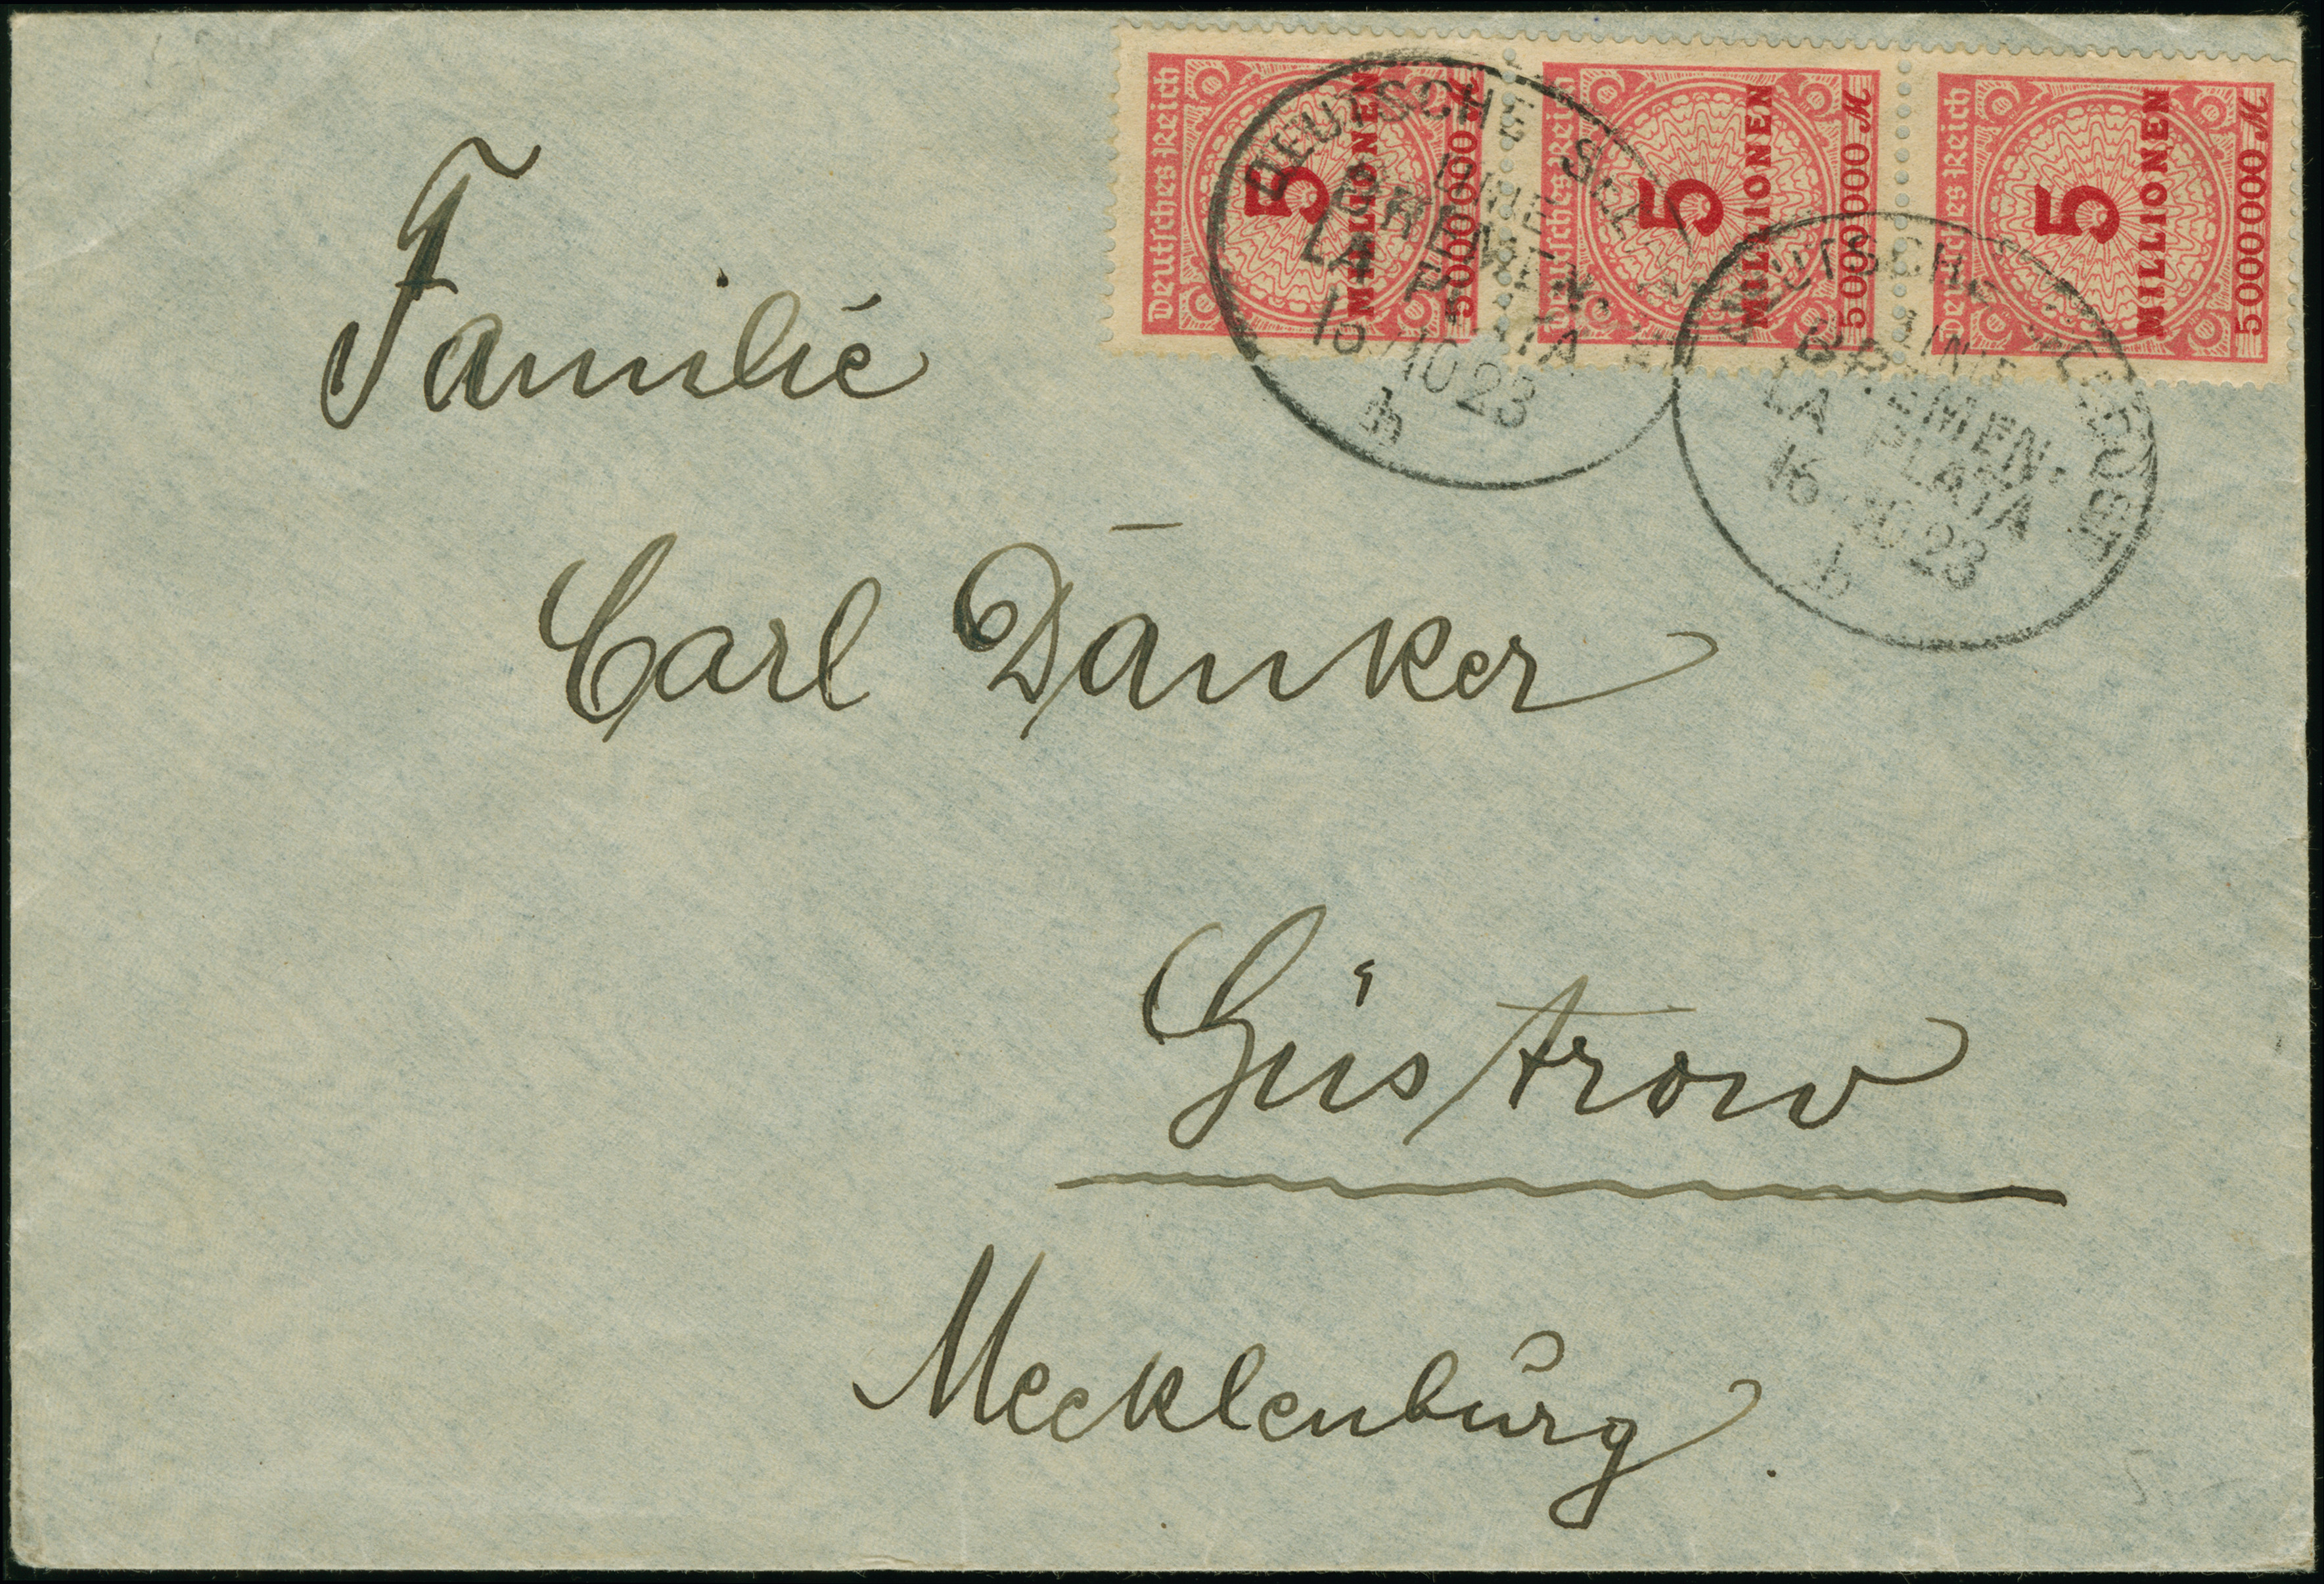 Deutsches Reich
5
MILLIONEN
5000000 M
Deutsches Reich
5
MILLIONEN
5000000 M
Deutsches Reich
5
MILLIONEN
5000000 M
DEUTSCHE
LINIE
BREMEN-
LA PLATA
16 10 23
b
DEUTSCHE SEEPOST
LINIE
BREMEN-
LA PLATA
16 10 23
b
Familie
Carl Dänker
Güstrow
Mecklenburg.